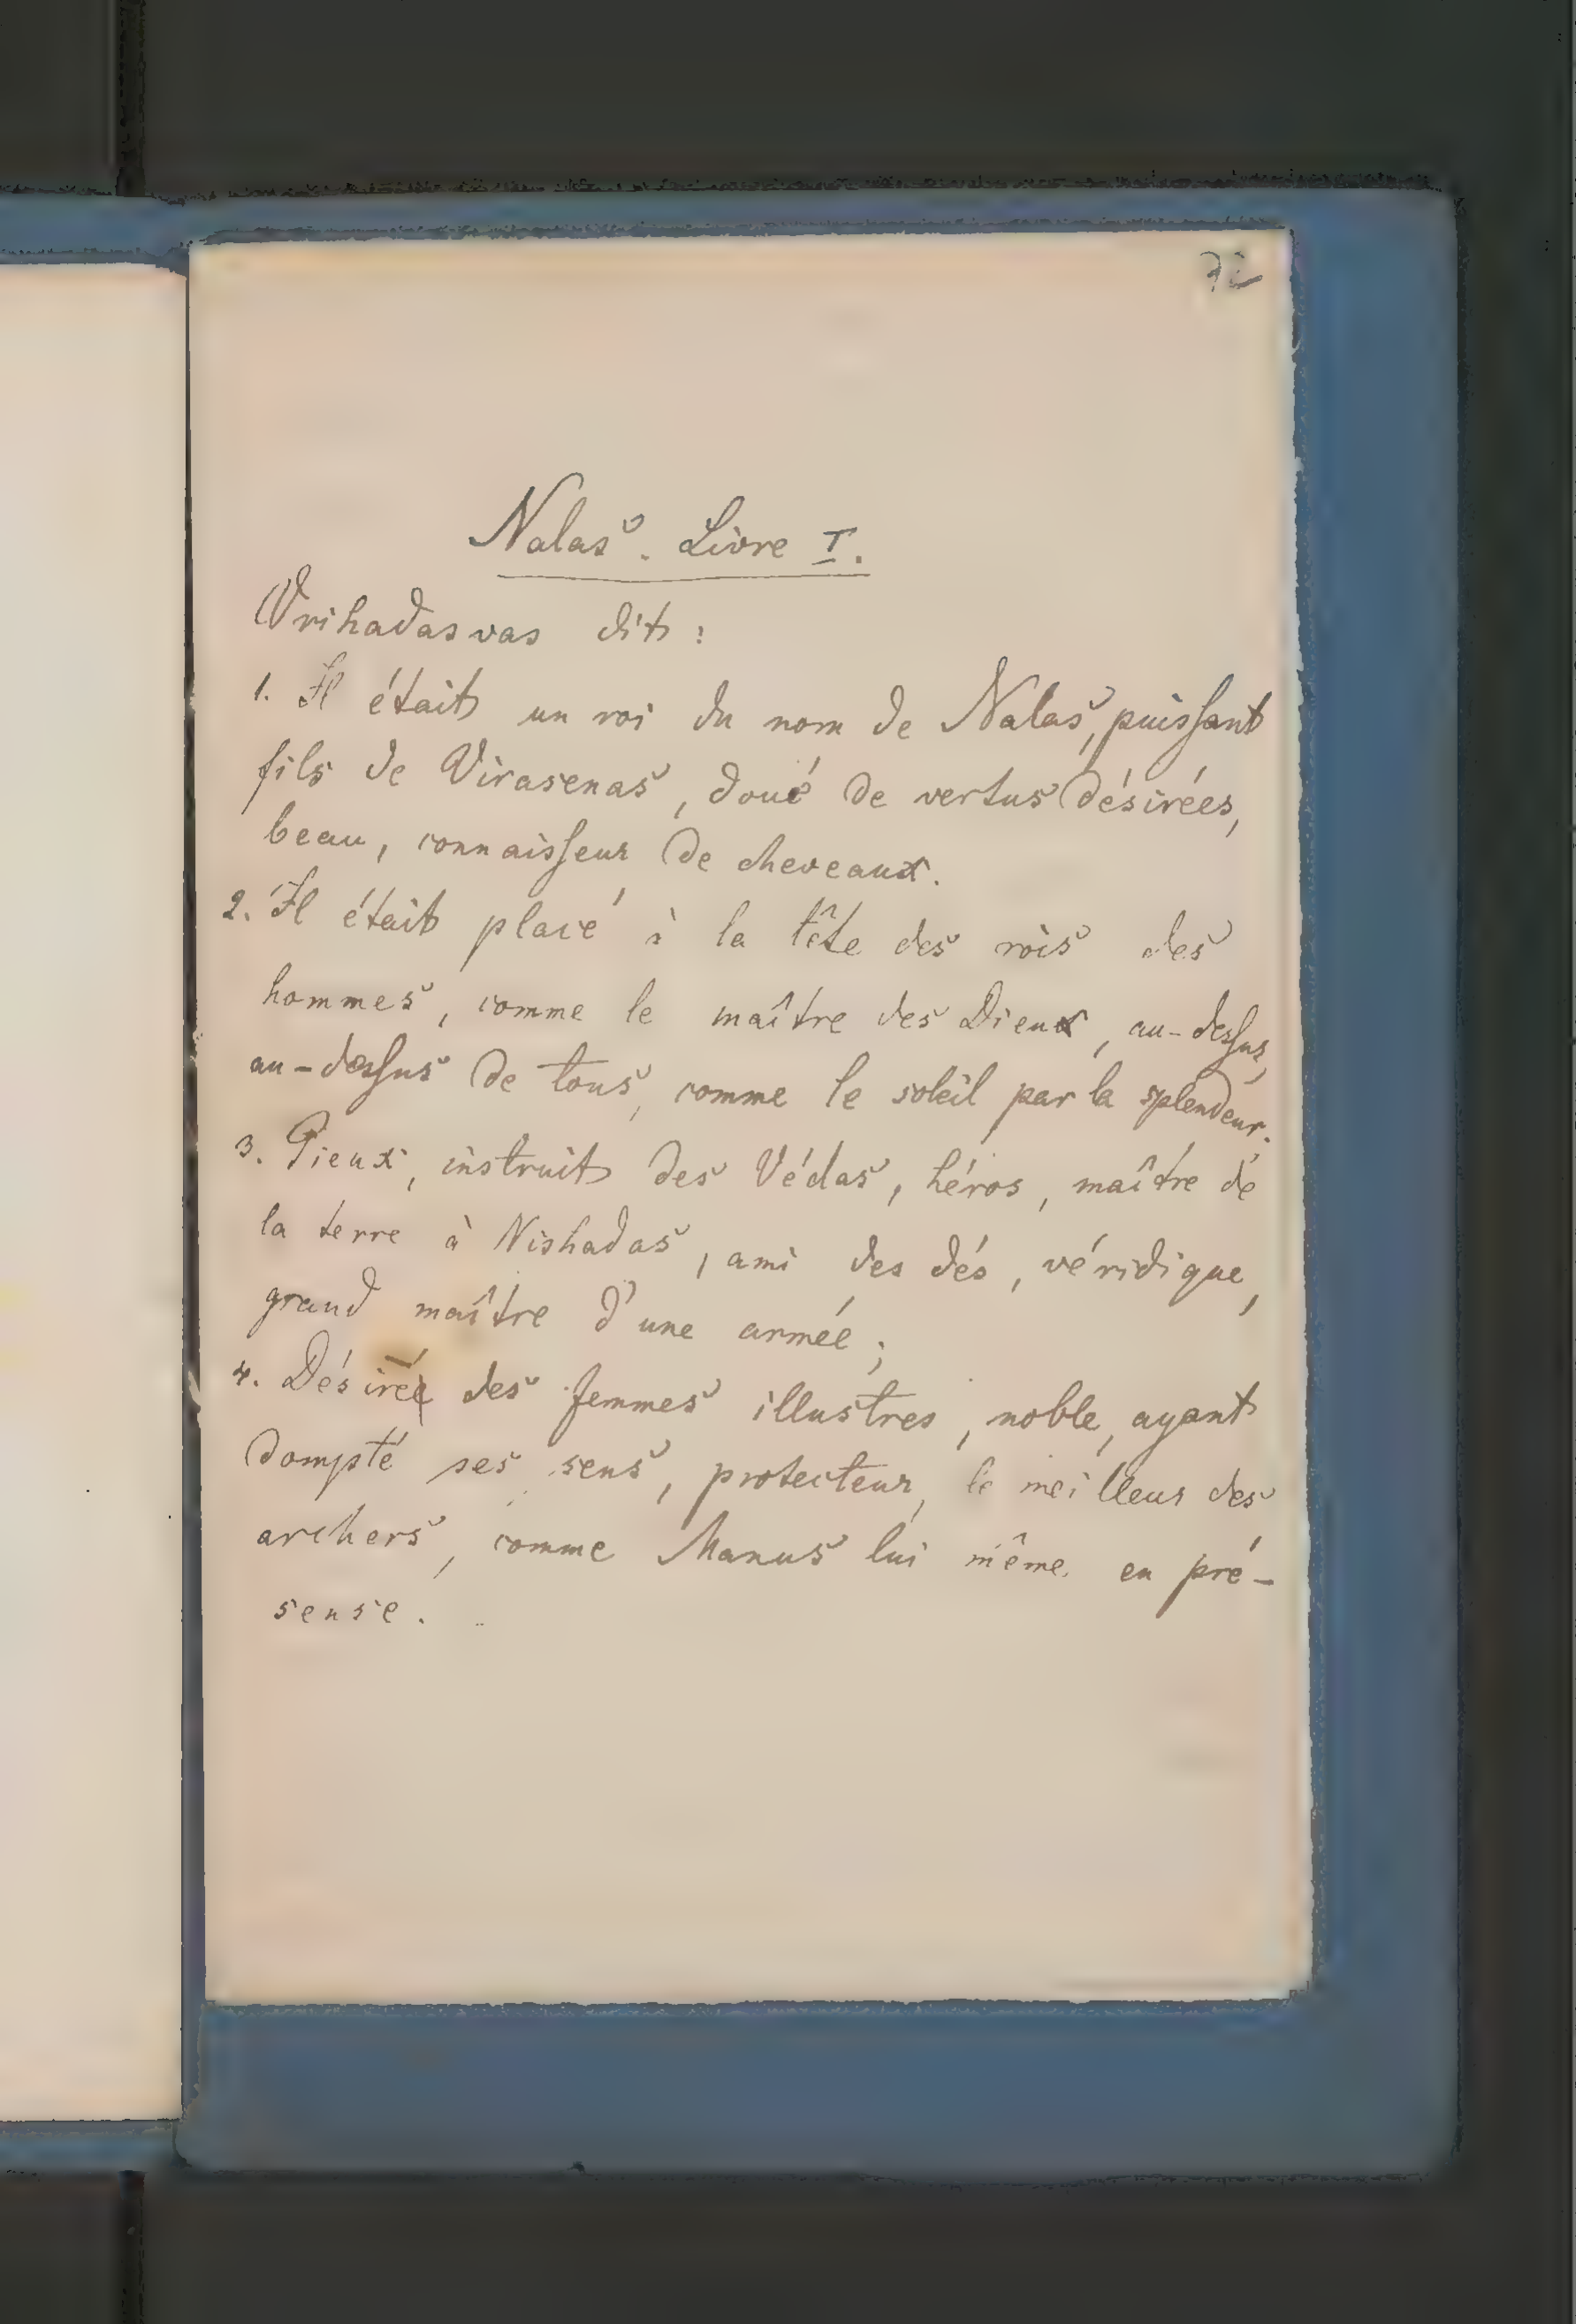 72
Nalas. Livre I.
Vrihadasvas dit :
1. Il était un roi du nom de Nalas, puissant
fils de Virasenas, doué de vertus désirées,
beau, connaisseur de cheveaux.
2. Il était placé à la tête des rois des
hommes, comme le maître des Dieux, au-dessus,
au-dessus de tous, comme le soleil par la splendeur.
3. Pieux, instruit des Védas, héros, maître de
la terre à Nishadas, ami des dés, véridique,
grand maître d'une armée ;
4. Désiré des femmes illustres, noble, ayant
dompté ses sens, protecteur, le meilleur des
archers, comme Manus lui même en pré-
sense.